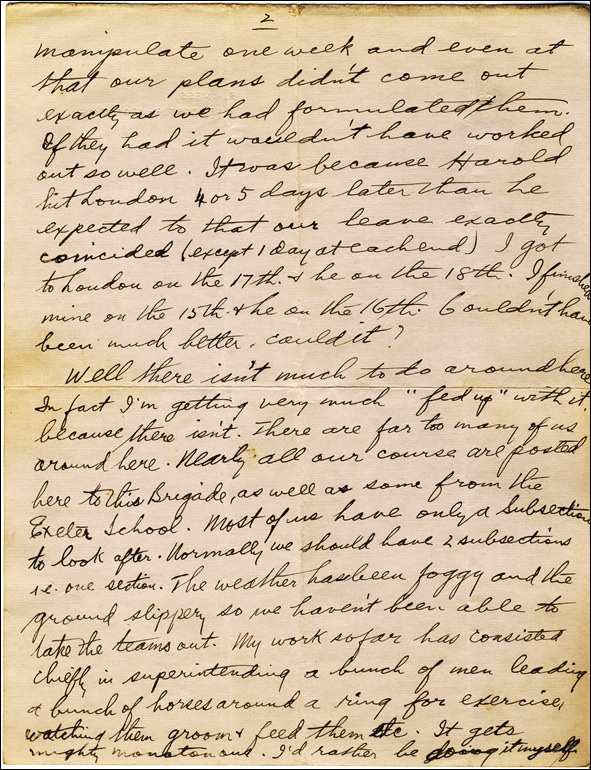 2
manipulate one week and even at
that our plans didn't come out
exactly as we had formulated them.
If they had it wouldn't have worked
out so well. It was because Harold
hit London 4 or 5 days later than he
expected to that our leave exactly
coincided (except 1 day at each end) I got
to London on the 17th. & he on the 18th. I finished
mine on the 15th. & he on the 16th. Couldn't have
been much better, could it?
Well there isn't much to do around here
In fact I'm getting very much "fed up" with it,
because there isn't. There are far too many of us
around here. Nearly all our course are posted
here to this Brigade, as well as some from the
Exeter School. Most of us have only a Subsection
to look after. Normally we should have 2 subsections
i.e. one section. The weather has been foggy and the
ground slippery so we haven't been able to
take the teams out. My work so far has consisted
chiefly in superintending a bunch of men leading
a bunch of horses around a ring for exercise,
watching them groom & feed them etc. It gets
mighty monotonous. I'd rather be doing it myself.